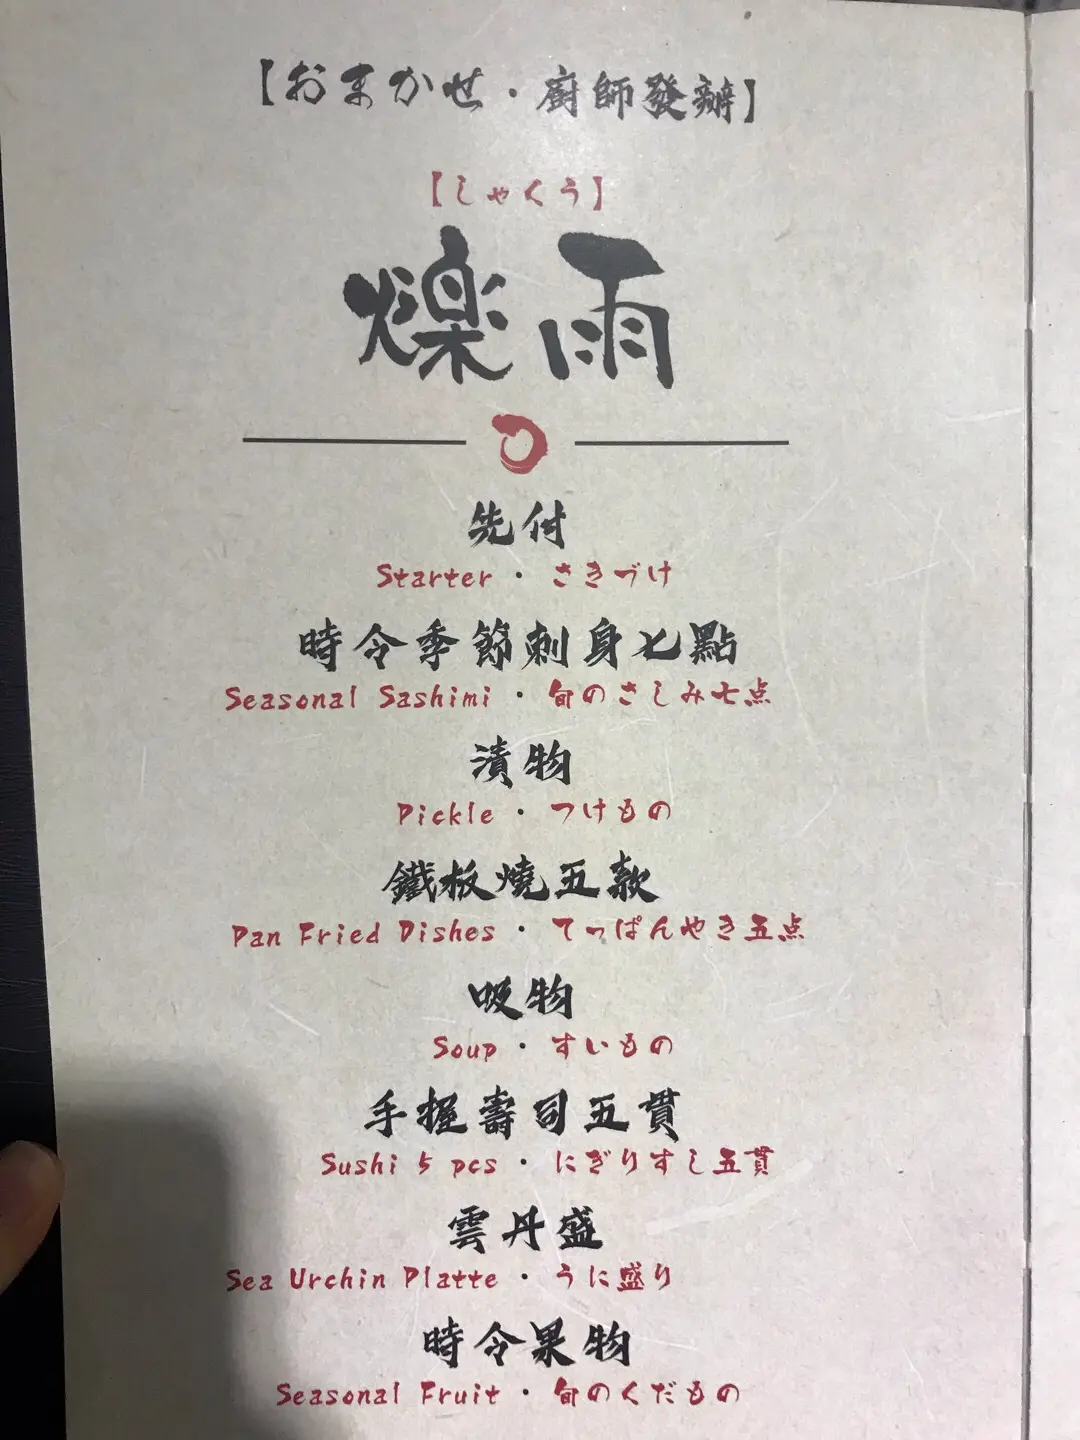 【おまかせ・廚師發辦】
【しゃくう】
爍雨
先付
Starter・さきづけ
時令季節刺身七點
Seasonal Sashimi・旬のさしみ七点
漬物
Pickle・つけもの
鐵板燒五款
Pan Fried Dishes・てっぱんやき五点
吸物
Soup・すいもの
手握壽司五貫
Sushi 5 pcs・にぎりすし五貫
雲丹盛
Sea Urchin Platte・うに盛り
時令果物
Seasonal Fruit・旬のくだもの